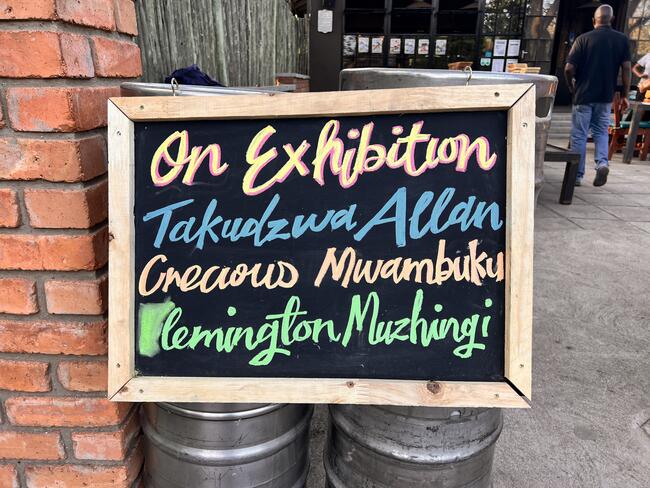 On Exhibition
Takudzwa Allan
Crecious Mwambuku
Flemington Muzhingi